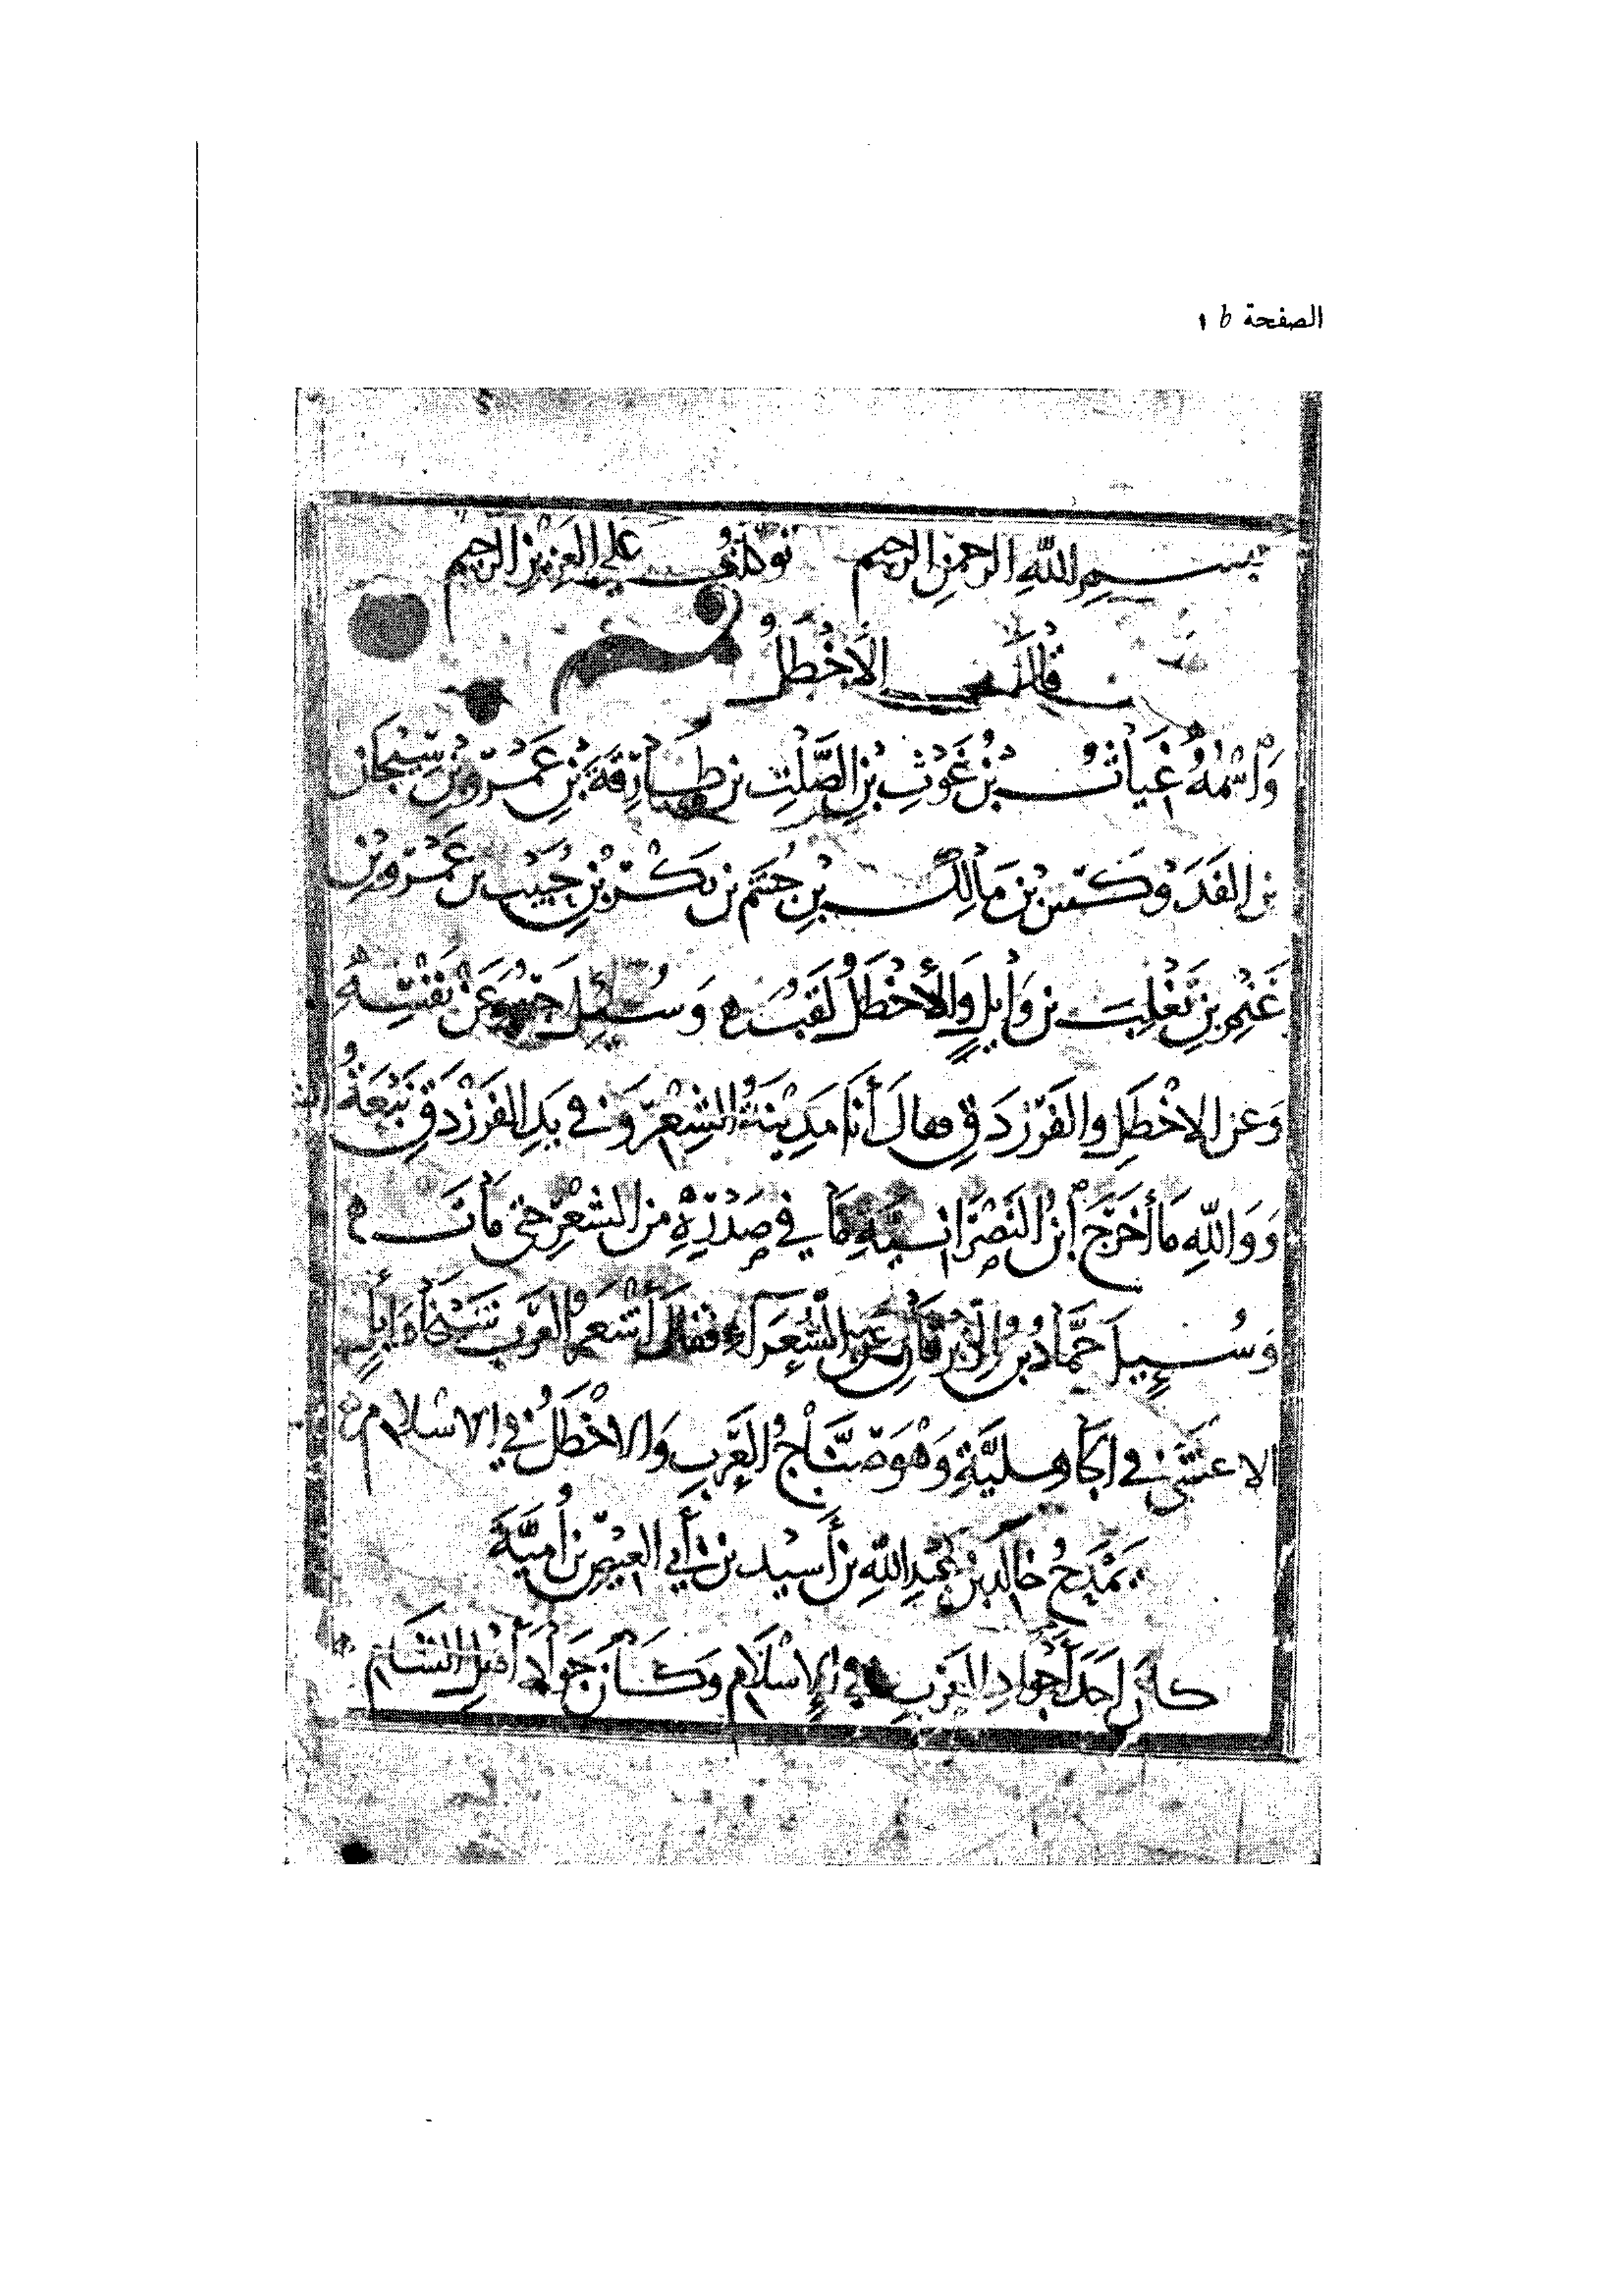 الصفحة b ١
بسم الله الرحمن الرحيم توكلت على العزيز الرحيم
قال الأخطل
وَاسْمُهُ غياثُ بْنُ غَوْثِ بْنِ الصَّلْتِ بن طَارِقَةَ بْنِ عَمْرِو بْنِ سِيْجَان
بن الفَدَوْكَسِ بْنِ مَالِكِ بْنِ جُشَمَ بن بَكْرِ بْنِ حُبَيْبِ بن عَمْرِو بْنِ
غَنْمِ بنِ تَغْلِبَ بن وَايلٍ وَالأَخْطَلُ لَقَبٌ وَسُئِلَ جَرِيرٌ عَنْ نَفْسِهِ
وَعن الاخْطَلِ والفَرَزْدَقِ فقالَ أَنَا مَدِيْنَةُ الشِّعْرِ وَفي يَدِ الفَرَزْدَقِ نَبْعَةُ
وَوَاللهِ مَا أَخْرَجَ ابنُ النَصْرَانِيَّةِ مَا في صَدْرِهِ من الشِّعْرِ حتى مَاتَ
وَسُئِيلَ حَمَّادُ بنُ الزِّبْرِقَانِ عَنِ الشُّعَرَآءِ فَقَالَ أَشْعَرُ العَرَبِ شَيْخَا وَايلٍ
الاعْشَى في الجَاهِلِيَّةِ وَهُوَ صَنَّاجُ العَرَبِ وَالاخْطَلُ في الاسْلامِ
يَمْدَحُ خَالدَ بنَ عَبْدِ اللهِ بن أَسِيْدِ بن أَبي العِيْصِ بن أُمَيَّةَ
كانَ أَحَدَ أَجْوَادِ العَرَبِ في الإِسْلَامِ وَكَانَ جَوَادَ أَهْلِ الشَّام